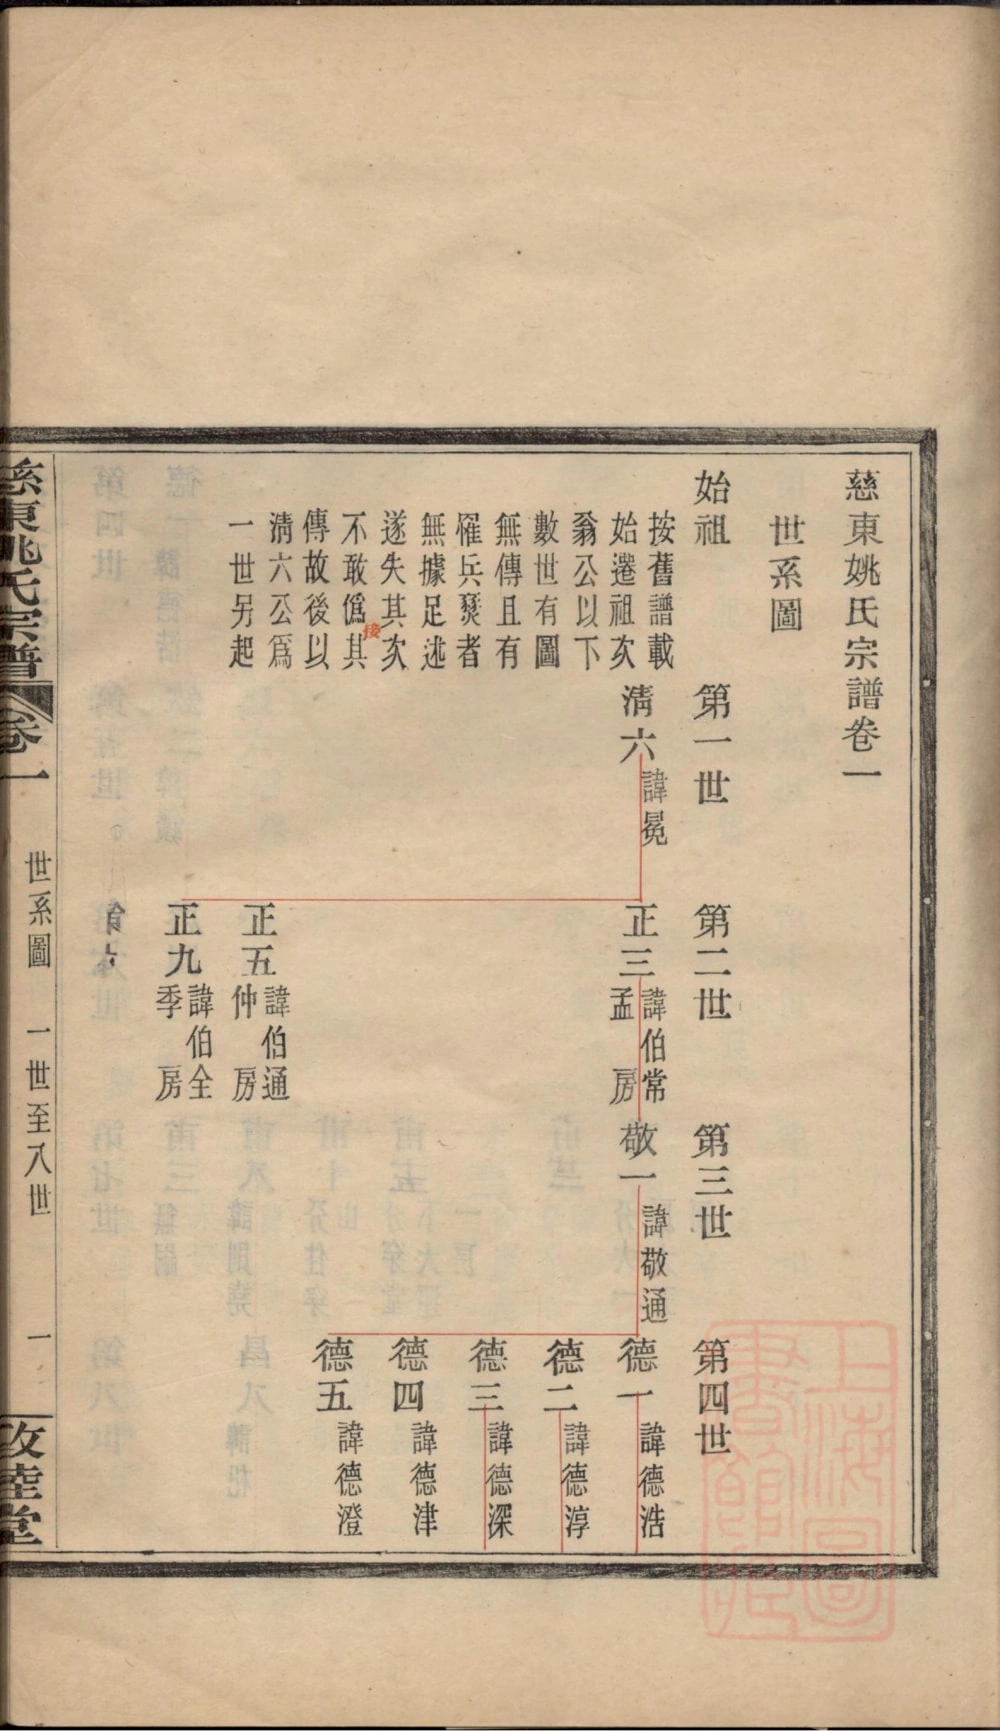 慈東姚氏宗譜卷一
世系圖
始祖
第一世
第二世
第三世
第四世
按舊譜載
始遷祖次
翁公以下
數世有圖
無傳且有
罹兵燹者
無據足述
遂失其次
不敢僞其
接
傳故後以
清六公爲
一世另起
清六
諱冕
正三
諱伯常
孟房
正五
諱伯通
仲房
正九
諱伯全
季房
敬一
諱敬通
德一
諱德浩
德二
諱德淳
德三
諱德深
德四
諱德津
德五
諱德澄
慈東姚氏宗譜
卷一
世系圖
一世至八世
一
上海圖書館藏